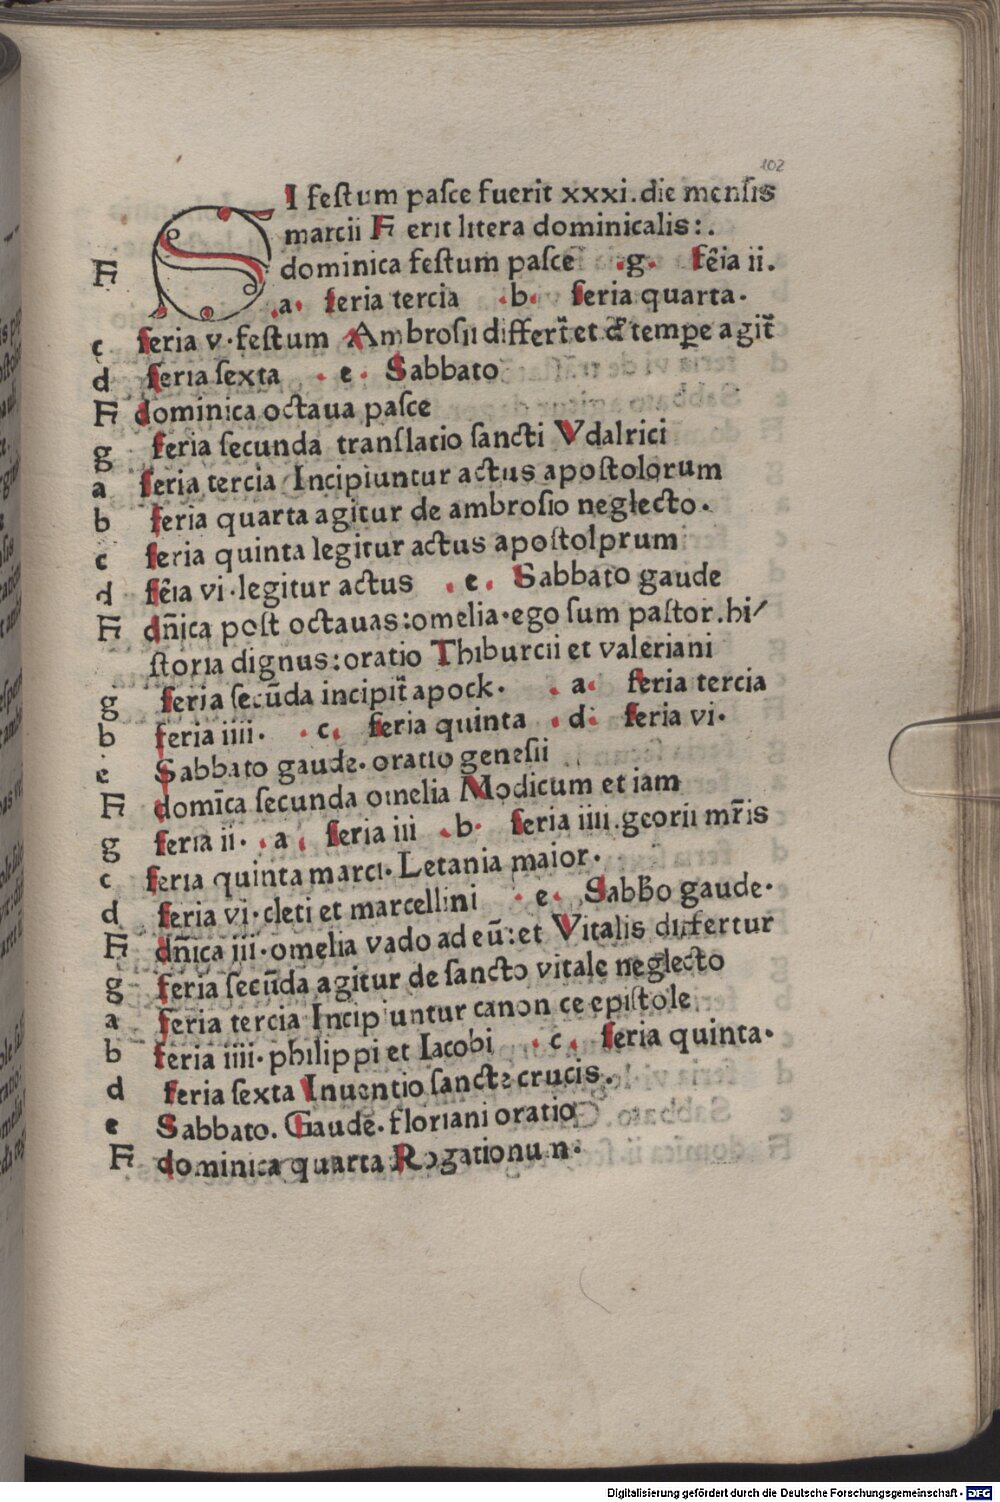 102
SI feſtum paſce fuerit xxxi.die menſis
marcii F erit litera dominicalis:.
F dominica feſtum paſce .g. fēia ii.
.a. feria tercia .b. feria quarta.
c feria v.feſtum Ambroſii differt̄ et de tempe agit̄
d feria ſexta . e . Sabbato
F dominica octaua paſce
g feria ſecunda tranſlatio ſancti Vdalrici
a feria tercia Incipiuntur actus apoſtolorum
b feria quarta agitur de ambroſio neglecto.
c feria quinta legitur actus apoſtolprum
d fēia vi.legitur actus . e . Sabbato gaude
F dn̄ica poſt octauas:omelia.ego ſum paſtor.hi/
ſtoria dignus:oratio Thiburcii et valeriani
g feria ſecūda incipit̄ apock. . a. feria tercia
b feria iiii. . c. feria quinta . d. feria vi.
e Sabbato gaude.oratio geneſii
F domīca ſecunda omelia Modicum et iam
g feria ii. . a . feria iii .b. feria iiii.georii mr̄is
c feria quinta marci.Letania maior.
d feria vi.cleti et marcellini . e . Sabb̄o gaude.
F dn̄ica iii.omelia vado ad eū:et Vitalis differtur
g feria ſecūda agitur de ſancto vitale neglecto
a feria tercia Incipiuntur canonice epiſtole
b feria iiii.philippi et Iacobi . c . feria quinta.
d feria ſexta Inuentio ſancte crucis.
e Sabbato. Gaude.floriani oratio
F dominica quarta Rogationum.
Digitalisierung gefördert durch die Deutsche Forschungsgemeinschaft - DFG